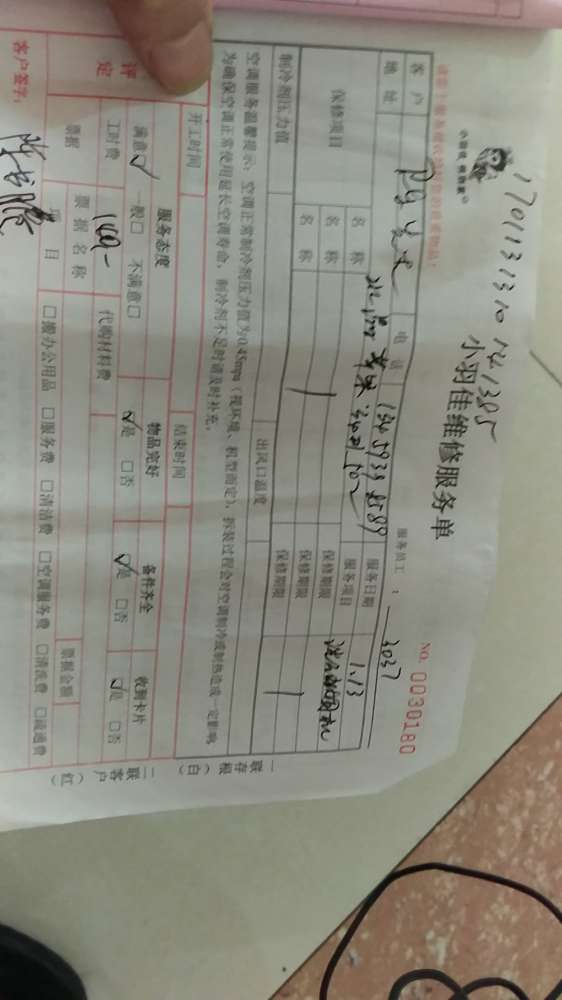 1701131310141385
小羽佳 保修家
小羽佳维修服务单
NO. 0030180
服务员工： 3037
客户
电话
服务日期 1.13
地址
服务项目
保修项目
名称
保修期限
名称
保修期限
名称
保修期限
制冷剂压力值
出风口温度
空调服务温馨提示：空调正常制冷剂压力值为0.45mpa（视环境、机型而定），拆装过程会对空调制冷或制热造成一定影响
为确保空调正常使用延长空调寿命，制冷剂不足时请及时补充。
开工时间
结束时间
评定
服务态度
物品完好
备件齐全
收到卡片
满意☑ 一般□ 不满意□
☑是 □否
☑是 □否
☑是 □否
工时费
149-
代购材料费
票据
票据名称
票据金额
项目
□搬办公用品 □服务费 □清洁费 □空调服务费 □清洗费 □疏通费
客户签字：
一联存根（白）
二联客户（红）